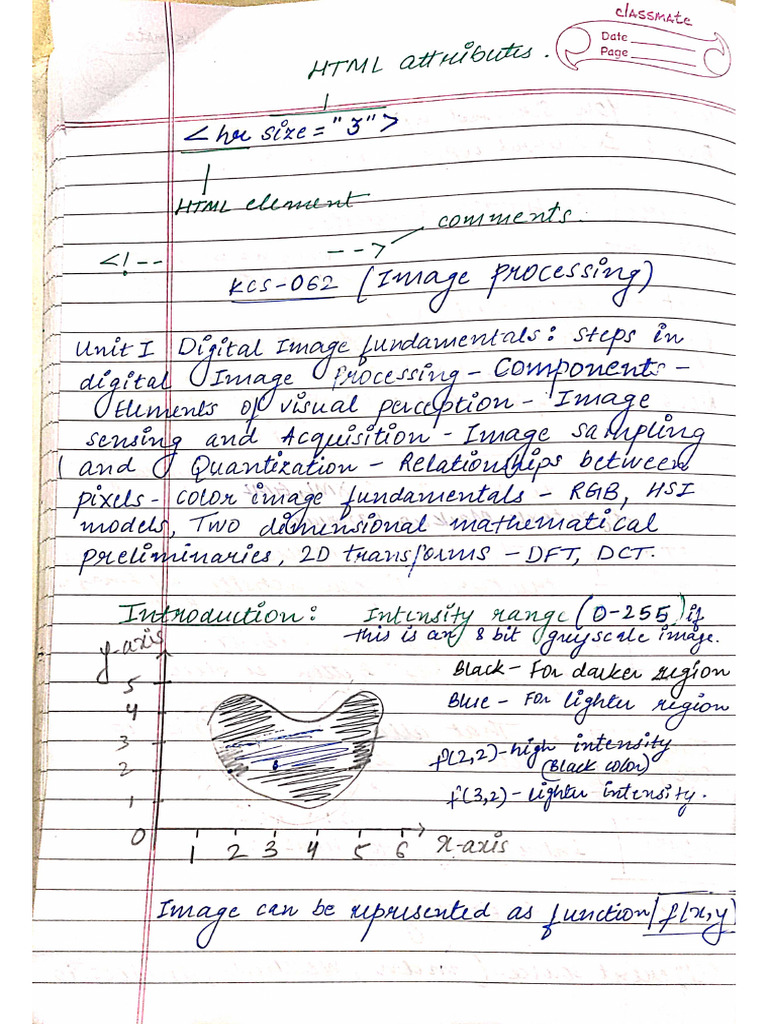 classmate
Date
Page
HTML attributes.
<hr size="3">
HTML element
comments.
<!-- -->
KCS-062 (Image processing)
Unit I Digital Image fundamentals: Steps in
digital Image Processing - Components -
Elements of visual perception - Image
sensing and Acquisition - Image sampling
and Quantization - Relationships between
pixels - color image fundamentals - RGB, HSI
models, Two dimensional mathematical
preliminaries, 2D transforms - DFT, DCT.
Introduction: Intensity range (0-255) if
this is an 8 bit greyscale image.
y-axis
Black - For darker region
5
Blue - For lighter region
4
3
f(2,2) - high intensity
(Black color)
2
f(3,2) - lighter intensity.
1
0
1 2 3 4 5 6 x-axis
Image can be represented as function f(x,y)